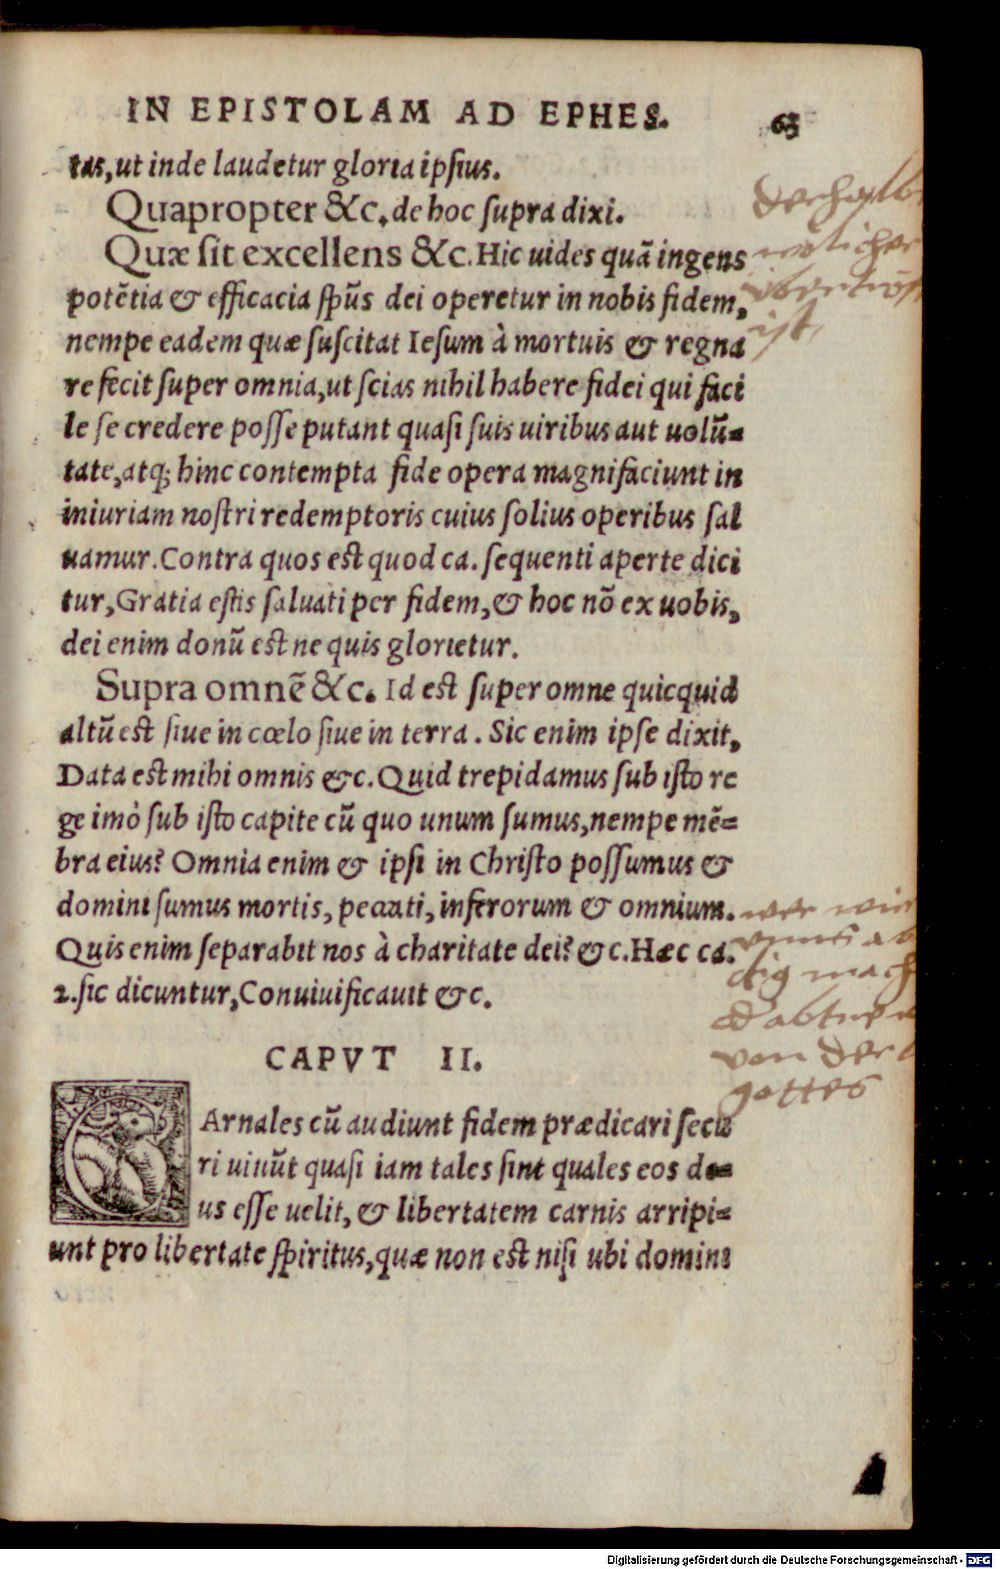 IN EPISTOLAM AD EPHES. 63
tas, ut inde laudetur gloria ipſius.
Quapropter &c. de hoc ſupra dixi.
Quæ ſit excellens &c. Hic uides quã ingens
potẽtia & efficacia ſpũs dei operetur in nobis fidem,
nempe eadem quæ ſuſcitat Ieſum à mortuis & regna
re fecit ſuper omnia, ut ſcias nihil habere fidei qui faci
le ſe credere poſſe putant quaſi ſuis uiribus aut uolũ=
tate, atq; hinc contempta fide opera magnifaciunt in
iniuriam noſtri redemptoris cuius ſolius operibus ſal
uamur. Contra quos eſt quod ca. ſequenti aperte dici
tur, Gratia eſtis ſaluati per fidem, & hoc nõ ex uobis,
dei enim donũ eſt ne quis glorietur.
Supra omnẽ &c. Id eſt ſuper omne quicquid
altũ eſt ſiue in cœlo ſiue in terra. Sic enim ipſe dixit,
Data eſt mihi omnis &c. Quid trepidamus ſub iſto re
ge imò ſub iſto capite cũ quo unum ſumus, nempe mẽ=
bra eius? Omnia enim & ipſi in Chriſto poſſumus &
domini ſumus mortis, peccati, inferorum & omnium.
Quis enim ſeparabit nos à charitate dei? &c. Hæc ca.
2. ſic dicuntur, Conuiuificauit &c.
von der
gottes
CAPVT II.
CArnales cũ audiunt fidem prædicari ſecu
ri uiuũt quaſi iam tales ſint quales eos de=
us eſſe uelit, & libertatem carnis arripi=
unt pro libertate ſpiritus, quæ non eſt niſi ubi domini
Digitalisierung gefördert durch die Deutsche Forschungsgemeinschaft - DFG